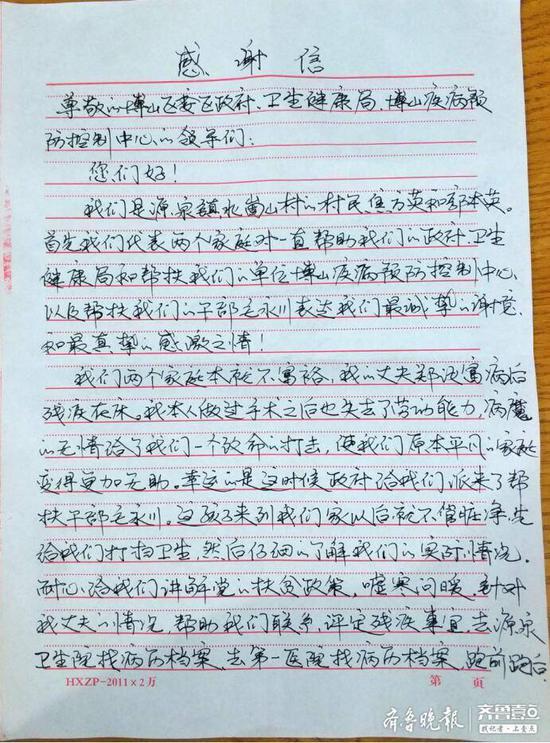 感谢信
尊敬的博山区委区政府、卫生健康局、博山疾病预
防控制中心的领导们:
您们好!
我们是源泉镇水崮山村的村民焦方英和郑本英。
首先我们代表两个家庭对一直帮助我们的政府、卫生
健康局和帮扶我们的单位博山疾病预防控制中心
以及帮扶我们的干部毛永川表达我们最诚挚的谢意
和最真挚的感激之情!
我们两个家庭本就不富裕,我的丈夫郑 病后
残疾在床。我本人做过手术之后也失去了劳动能力,病魔
的无情给了我们一个致命的打击,使我们原本平凡的家庭
变得更加无助。幸运的是这时候政府给我们派来了帮
扶干部毛永川。这孩子来到我们家以后就不管脏净,先
给我们打扫卫生,然后仔细的了解我们的实际情况。
耐心给我们讲解党的扶贫政策,嘘寒问暖,针对
我丈夫的情况,帮助我们联系,评定残疾事宜,去源泉
卫生院找病历档案,去第一医院找病历档案,跑前跑后
HXZP-2011×2万 第 页
齐鲁晚报 齐鲁壹点